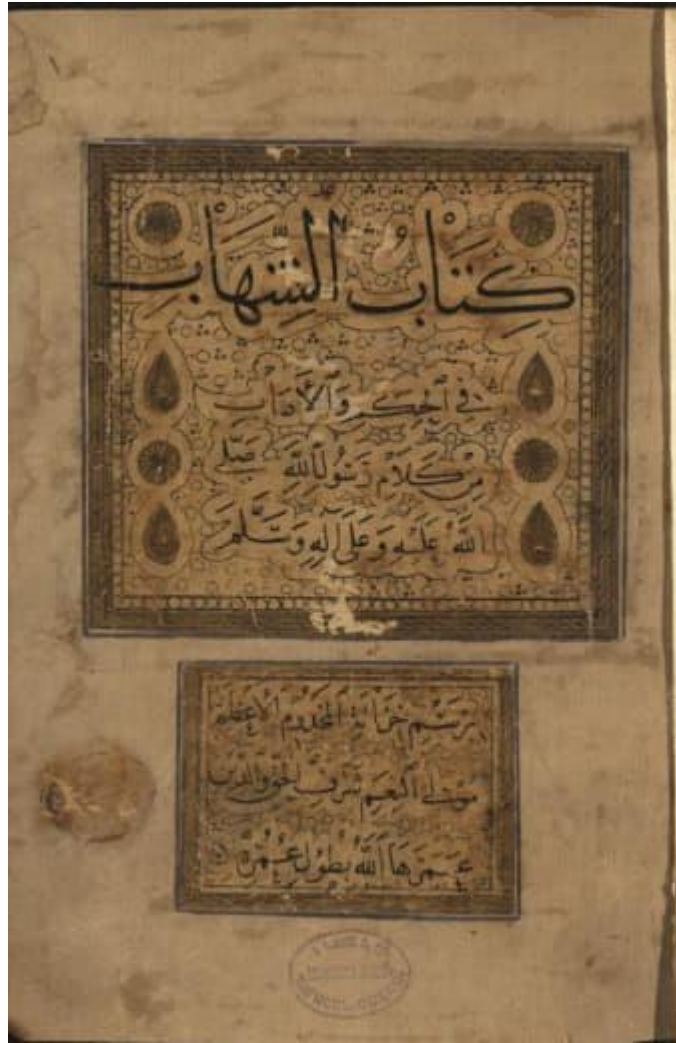 كِتَابُ الشِّهَابِ
في الحِكَمِ وَالْأَدَابِ
مِن كَلَامِ رَسُولِ اللهِ صَلَّى
اللهُ عَلَيْهِ وَعَلَى آلِهِ وَسَلَّمَ
بِرَسْمِ خِزَانَةِ المَخْدُومِ الأَعْظَمِ
شَرَفِ الحَقِّ وَالدِّينِ
عَمَرَهَا اللهُ بِطُولِ عُمْرِهِ